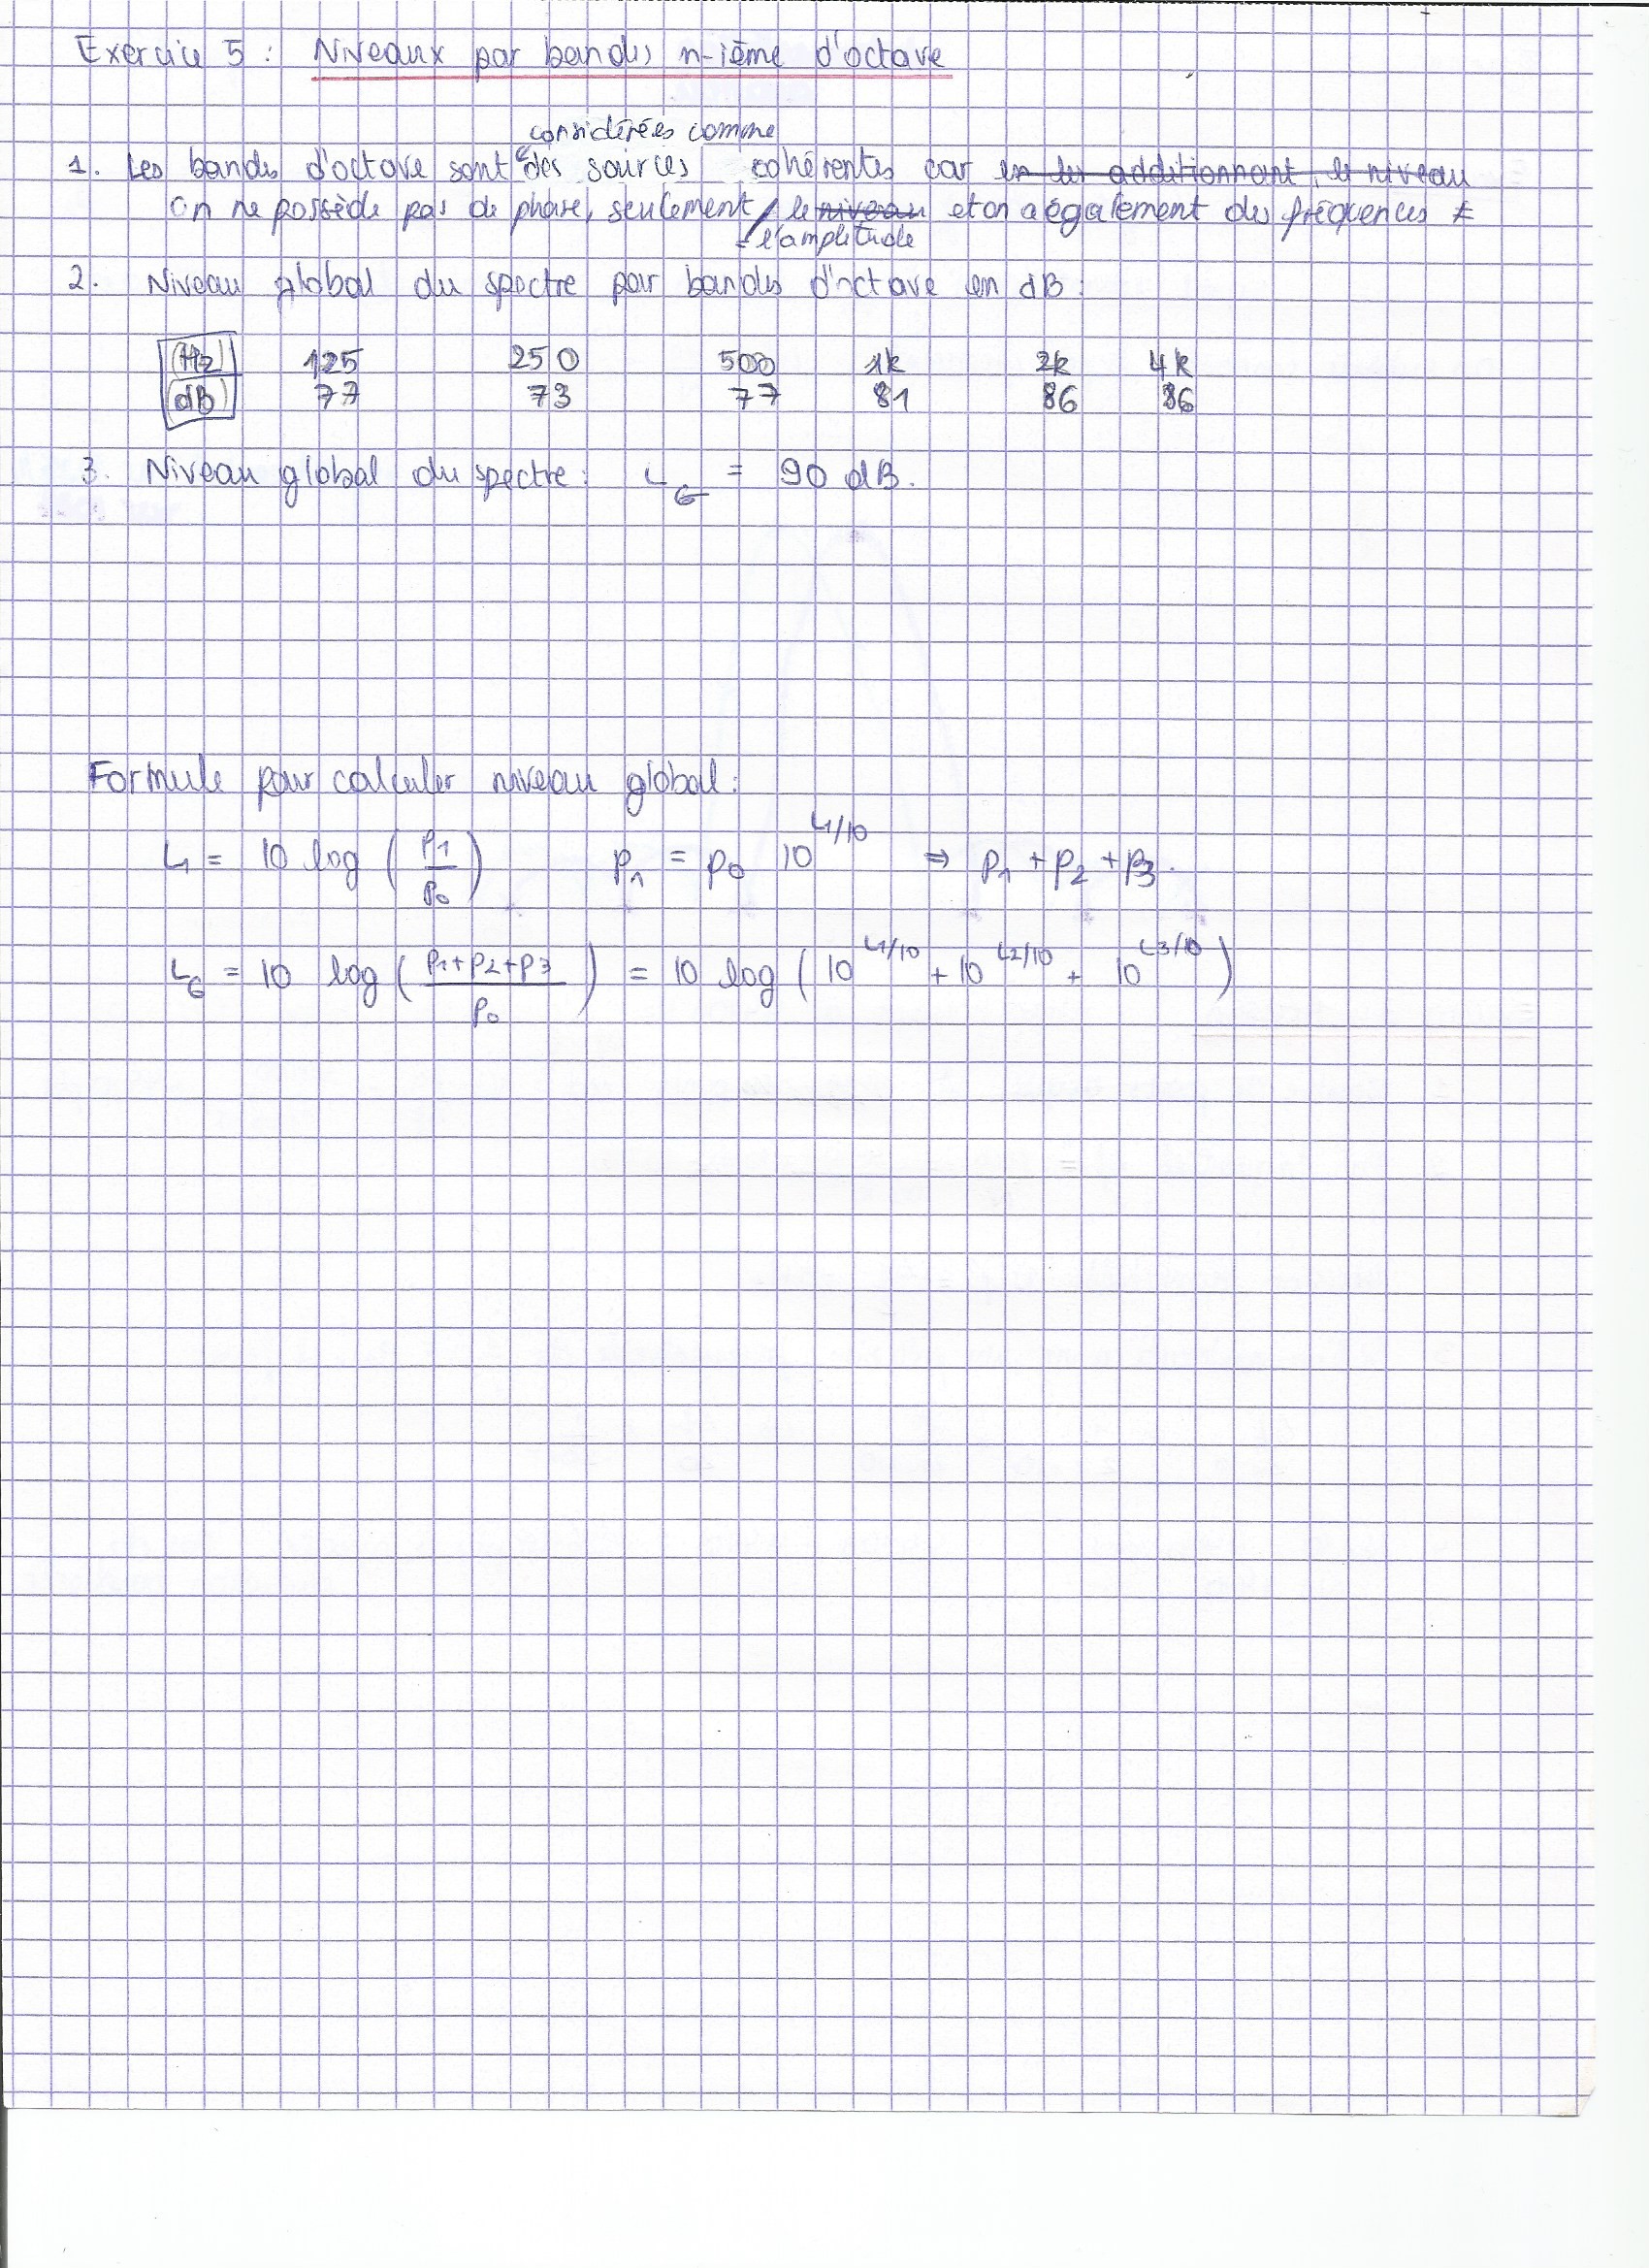 Exercice 5 : Niveaux par bandes n-ième d'octave
considérées comme
1. Les bandes d'octave sont des sources cohérentes car en les additionnant, le niveau
on ne possède pas de phase, seulement le niveau et on a également des fréquences ≠
l'amplitude
2. Niveau global du spectre par bandes d'octave en dB :
(Hz) 125 250 500 1k 2k 4k
(dB) 77 73 77 81 86 86
3. Niveau global du spectre : L_G = 90 dB.
Formule pour calculer niveau global :
L1 = 10 log (p1/p0) p1 = p0 10^(L1/10) ⇒ p1 + p2 + p3.
L_G = 10 log ((p1+p2+p3)/p0) = 10 log (10^(L1/10) + 10^(L2/10) + 10^(L3/10))